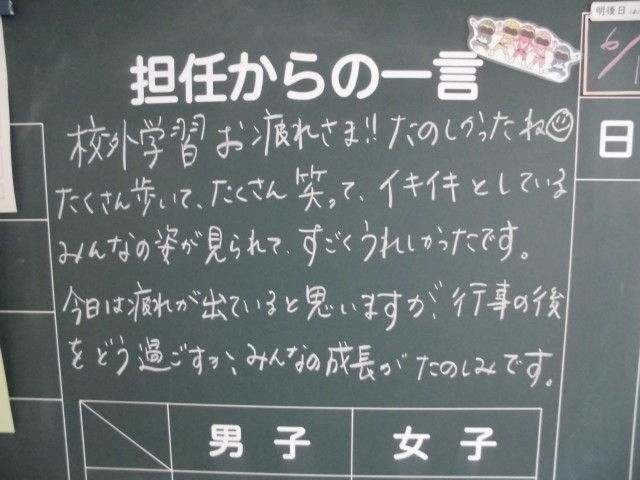 明後日
担任からの一言
校外学習お疲れさま!! たのしかったね☺
たくさん歩いて、たくさん笑って、イキイキとしている
みんなの姿が見られて、すごくうれしかったです。
今日は疲れが出ていると思いますが、行事の後
をどう過ごすか、みんなの成長がたのしみです。
6/
日
男子 女子